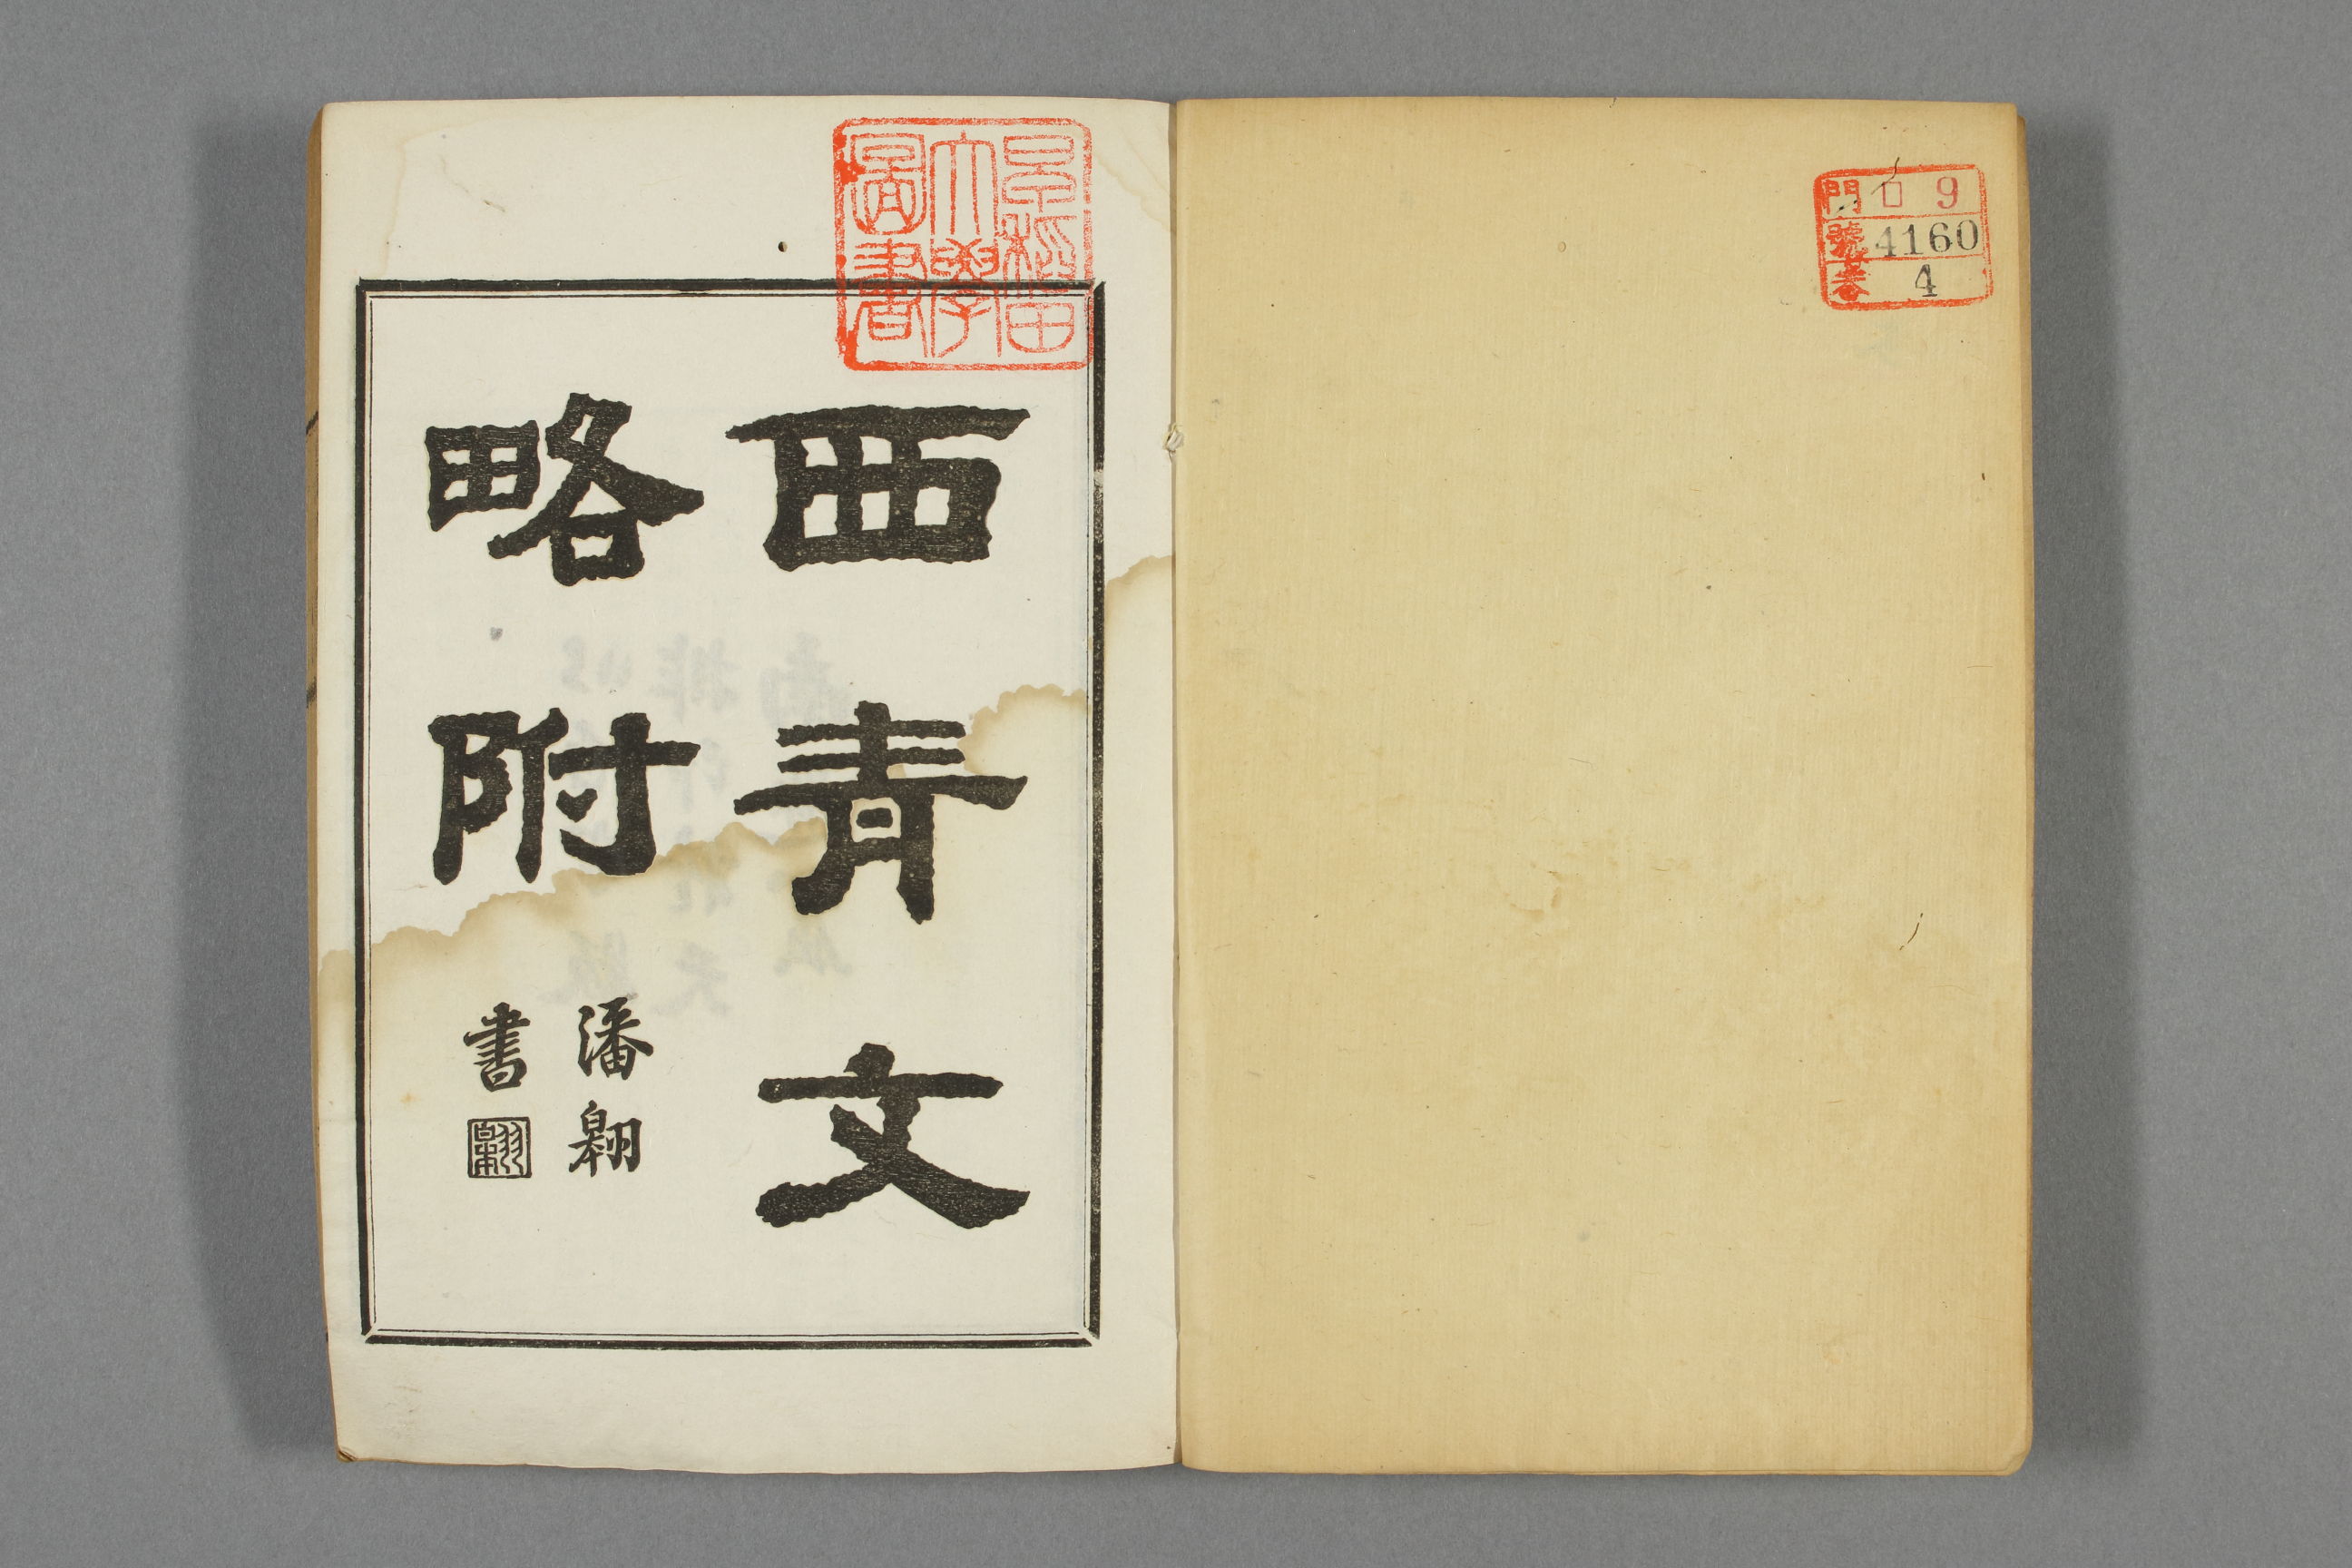 門 ロ 9
號 4160
卷 4
早稲田
大學
圖書
西青文
略附
潘翺
書
翺